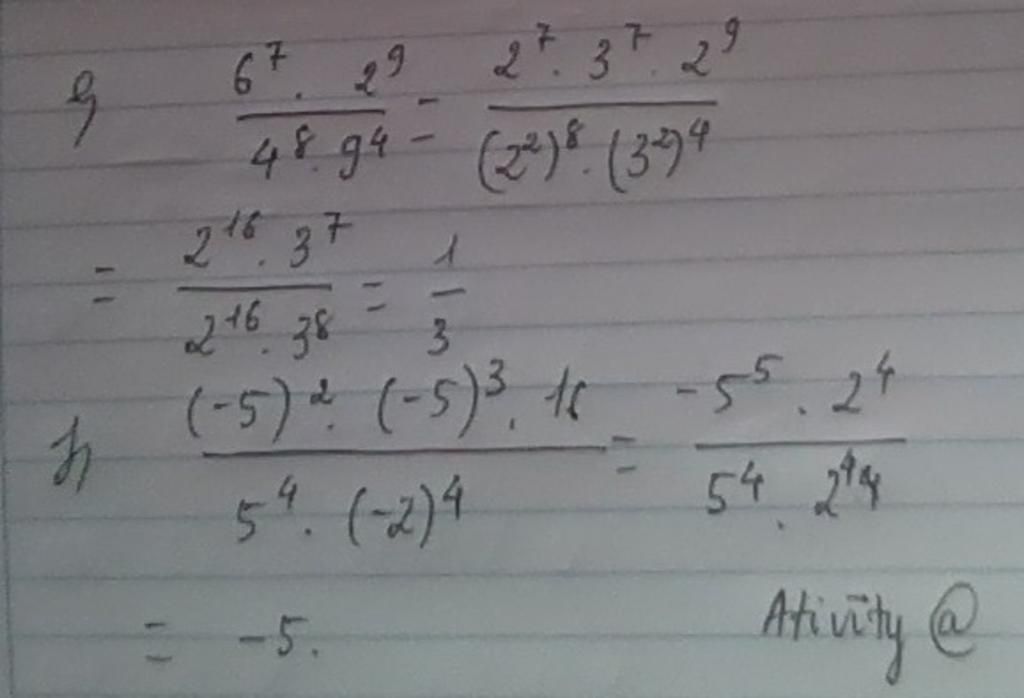 g) \frac{6^7 . 2^9}{4^8 . 9^4} = \frac{2^7 . 3^7 . 2^9}{(2^2)^8 . (3^2)^4}
= \frac{2^{16} . 3^7}{2^{16} . 3^8} = \frac{1}{3}
h) \frac{(-5)^2 . (-5)^3 . 16}{5^4 . (-2)^4} = \frac{-5^5 . 2^4}{5^4 . 2^4}
= -5.
Ativity @